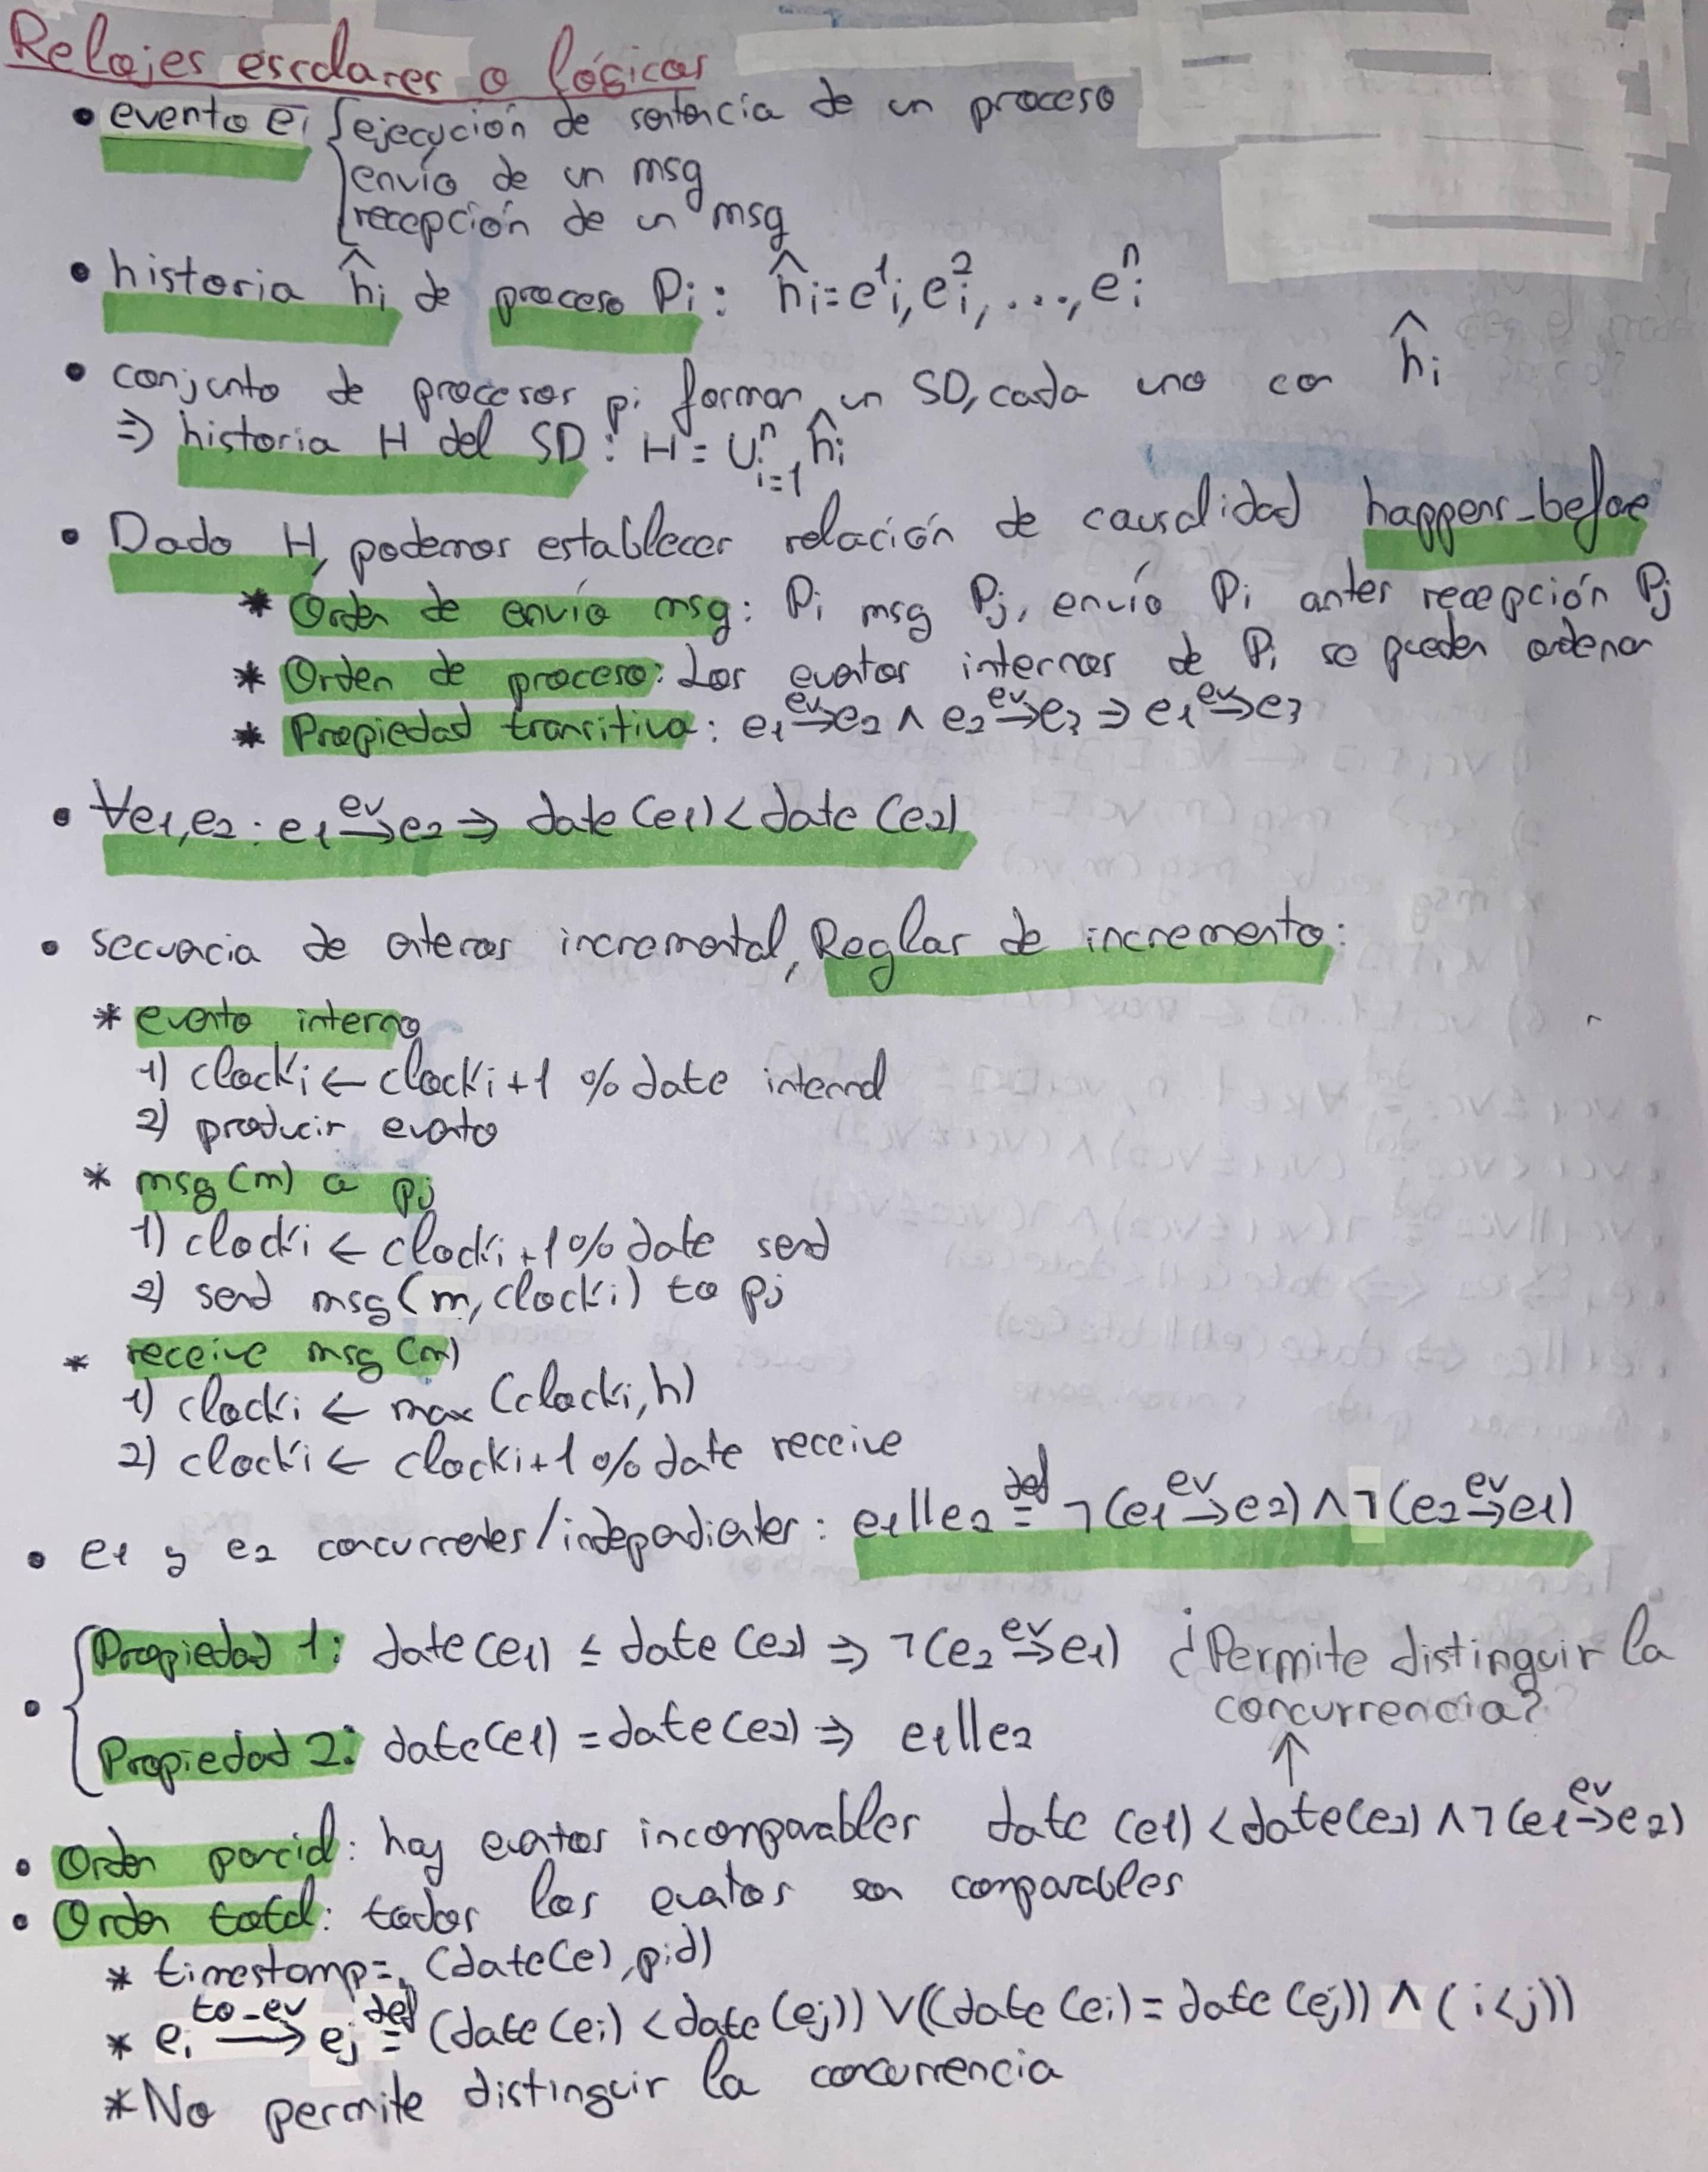 Relojes escalares o lógicos
• evento ei { ejecución de sentencia de un proceso
envío de un msg
recepción de un msg
• historia ĥi de proceso Pi: ĥi=e¹i, e²i, ..., eⁿi
• conjunto de procesos pi forman un SD, cada uno con ĥi
⇒ historia H del SD: H = ∪ⁿi=1 ĥi
• Dado H, podemos establecer relación de causalidad happens_before
* Orden de envío msg: Pi msg Pj, envío Pi antes recepción Pj
* Orden de proceso: Los eventos internos de Pi se pueden ordenar
* Propiedad transitiva: e1 ev→ e2 ∧ e2 ev→ e3 ⇒ e1 ev→ e3
• ∀e1,e2: e1 ev→ e2 ⇒ date(e1) < date(e2)
• secuencia de enteros incremental, Reglas de incremento:
* evento interno
1) clocki ← clocki+1 % date internal
2) producir evento
* msg(m) a pj
1) clocki ← clocki+1 % date send
2) send msg(m, clocki) to pj
* receive msg(m)
1) clocki ← max(clocki, h)
2) clocki ← clocki+1 % date receive
• e1 y e2 concurrentes/independientes: e1||e2 def= ¬(e1 ev→ e2) ∧ ¬(e2 ev→ e1)
• { Propiedad 1: date(e1) ≤ date(e2) ⇒ ¬(e2 ev→ e1) ¿Permite distinguir la
concurrencia?
Propiedad 2: date(e1) = date(e2) ⇒ e1||e2
↑
• Orden parcial: hay eventos incomparables date(e1) < date(e2) ∧ ¬(e1 ev→ e2)
• Orden total: todos los eventos son comparables
* timestamp = (date(e), pid)
* ei to_ev→ ej def= (date(ei) < date(ej)) ∨ ((date(ei) = date(ej)) ∧ (i<j))
* No permite distinguir la concurrencia